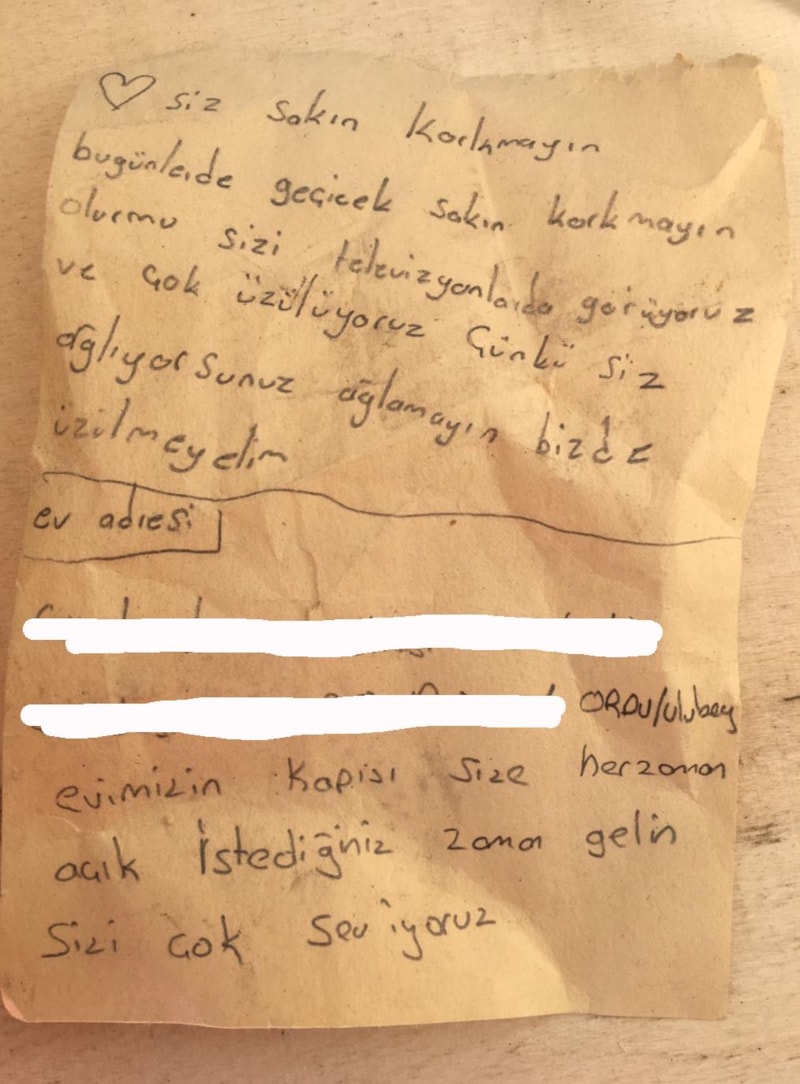 ♡ siz sakın korkmayın
bugünlerde geçicek sakın korkmayın
olurmu sizi televizyonlarda görüyoruz
ve çok üzülüyoruz Çünkü siz
ağlıyorsunuz ağlamayın bizde
üzülmeyelim
ev adresi
ORDU/ulubey
evimizin kapısı size herzaman
açık İstediğiniz zaman gelin
Sizi çok Seviyoruz